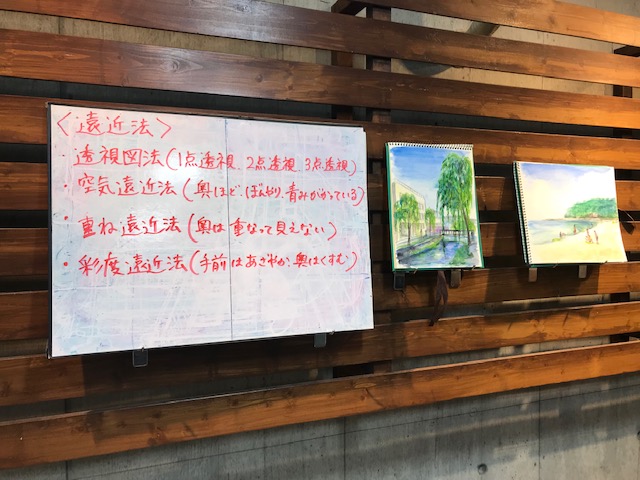 〈遠近法〉
・透視図法(1点透視、2点透視、3点透視)
・空気遠近法(奥ほど、ぼんやり、青みがかっている)
・重ね遠近法(奥は重なって見えない)
・彩度遠近法(手前はあざやか、奥はくすむ)